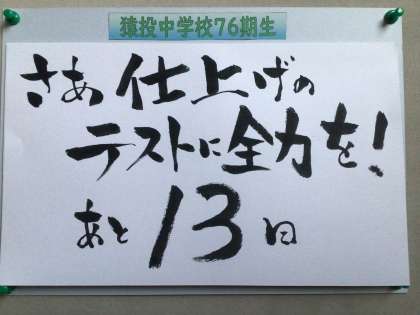 猿投中学校76期生
さあ仕上げの
テストに全力を!
あと13日